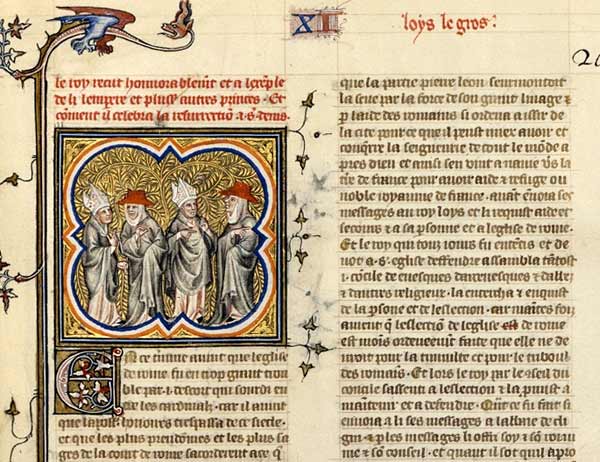 XI loys le gros:
le roy recut honnorablemt et a lexemple
de li lempere et plus autres princes. Et
coment q celebra la resurrection a s. denis.
En ce termine auint que leglise
de rome fu en trop grant trou
ble par .i. descort qui sourdi en
les cardinals. car il auint
que honoires trespassa de ce siecle.
et que les plus preudomes et les plus sa
ges de la court de rome sacorderent ace q
que la partie pierre leon seurmontoit
la seue par la force de son grant linage et
p laide des romains si ordena a issir de
la cite pour ce que il peust miex auoir et
conqrre la seigneurie de tout le mode a
pres dieu et ainsi sen vint a nauie vs la
tre de france pour auoir aide et refuge ou
noble royaume de france. auant enuoia ses
messages au roy loys et li requist aide et
secours a sa psonne et a leglise de rome.
Et le roy qui touz iours fu ententis et de
uot a s. eglise deffendre assambla tantost
.i. cocile de euesques darceuesques et dabbez
et dautres religieux. la encercha et enquist
de la psone et de leslection. car maintes foiz
auient q leslection de leglise de rome
est moins ordeneemt faite que elle ne de
uroit pour la tumulte et pour le tribouil
des romains. Et lors le roy par le seil du
concile sassent a leslection et la pmist a
maintenir et a defendre. Quat ce fu fait si
enuoia a li ses messages a labbaie de cli
gni et p les messages li offri soy et so roiau
me et so conseil. et quant il sot quil apro